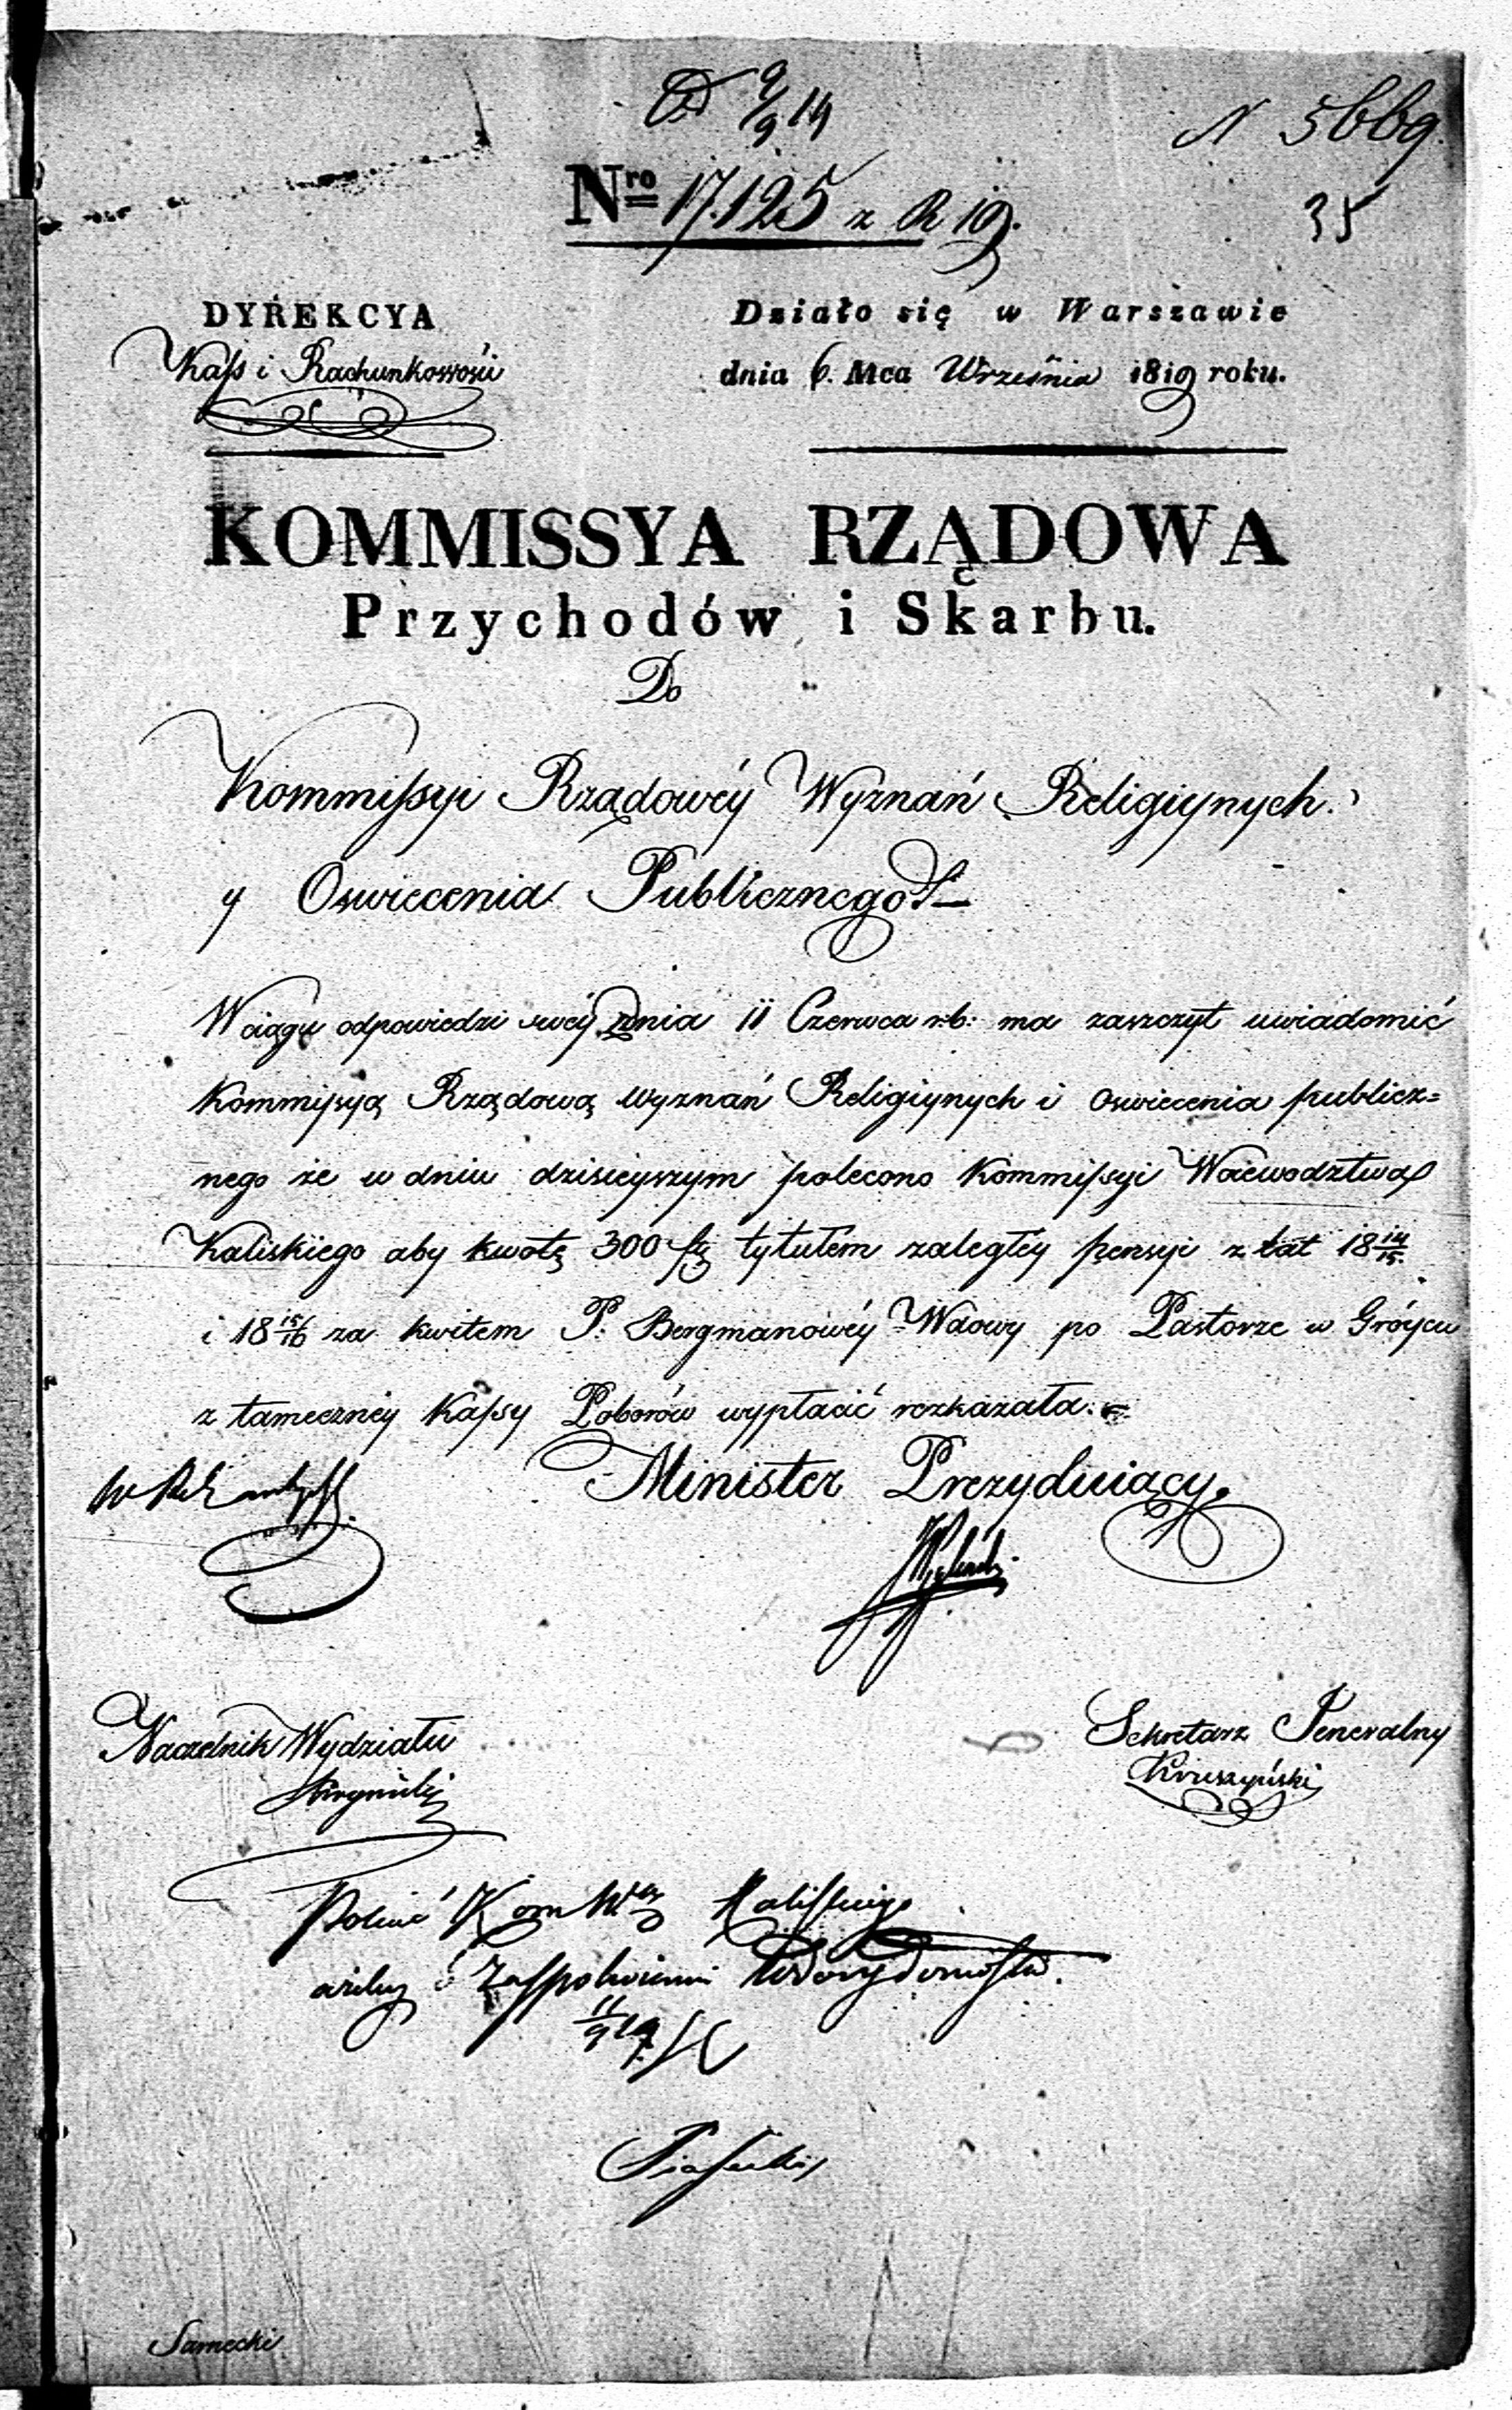 9/9 19
N 5669
Nro 17.125 z R 19.
35
DYREKCYA
Kass i Rachunkowości
Działo się w Warszawie
dnia 6. Mca Września 1819 roku.
KOMMISSYA RZĄDOWA
Przychodów i Skarbu.
Do
Kommissyi Rządowéy Wyznań Religiynych
y Oswiecenia Publicznego
W ciągu odpowiedzi swéy z dnia 11 Czerwca r: b: ma zaszczyt uwiadomić
Kommissyą Rządową wyznań Religiynych i Oswiecenia publicz=
nego że w dniu dzisieyszym polecono Kommissyi Woiewodztwa
Kaliskiego aby kwotę 300 złp tytułem zaległéy pensyi z lat 18 14/15.
i 18 15/16 za kwitem P. Bergmanowéy Wdowy po Pastorze w Gróycu
z tameczney Kassy Poborów wypłacić rozkazała.
Minister Prezyduiący.
Naczelnik Wydziału
Sekretarz Jeneralny
Kruszyński
Polecić Kom Wa Kaliskiego
ażeby o Zaspokoieniu Wdowy doniosła.
11/9 19
Piasecki
Samecki